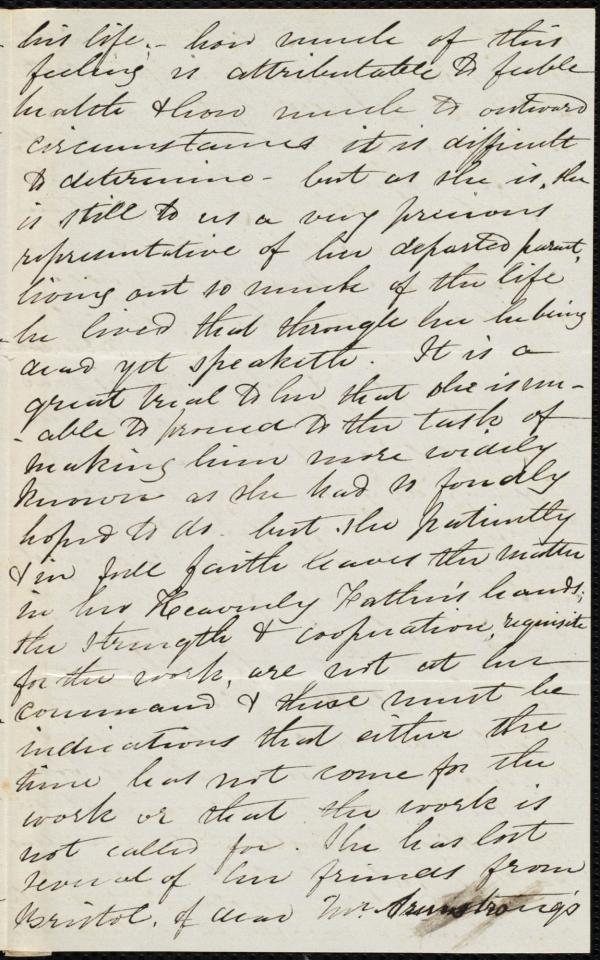 his life, - how much of this
feeling is attributable to feeble
health & how much to outward
circumstances it is difficult
to determine - but as she is, she
is still to us a very precious
representative of her departed parent,
living out so much of the life
he lived that through her he being
dead yet speaketh. It is a
great trial to her that she is un-
-able to proceed to the task of
making him more widely
known as she had so fondly
hoped to do. but she patiently
& in full faith leaves the matter
in her Heavenly Father's hands;
the strength & cooperation, requisite
for the work, are not at her
command & these must be
indications that either the
time has not come for the
work or that the work is
not called for. She has lost
several of her friends from
Bristol, of dear Mr. Armstrong's